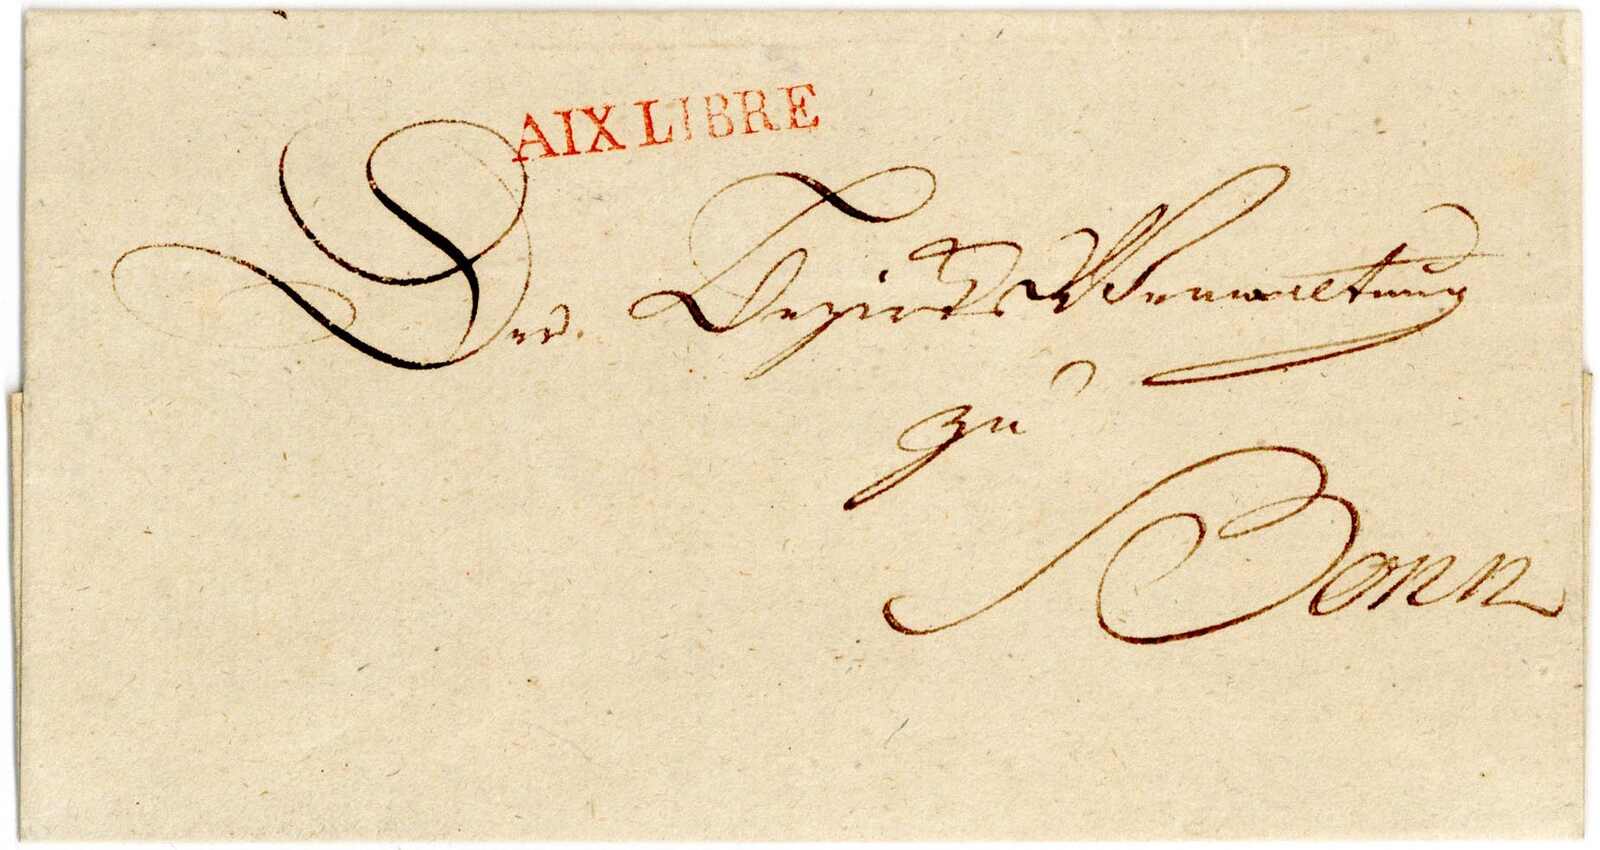 AIX LIBRE
Der Bezirks Verwaltung
zu
Bonn